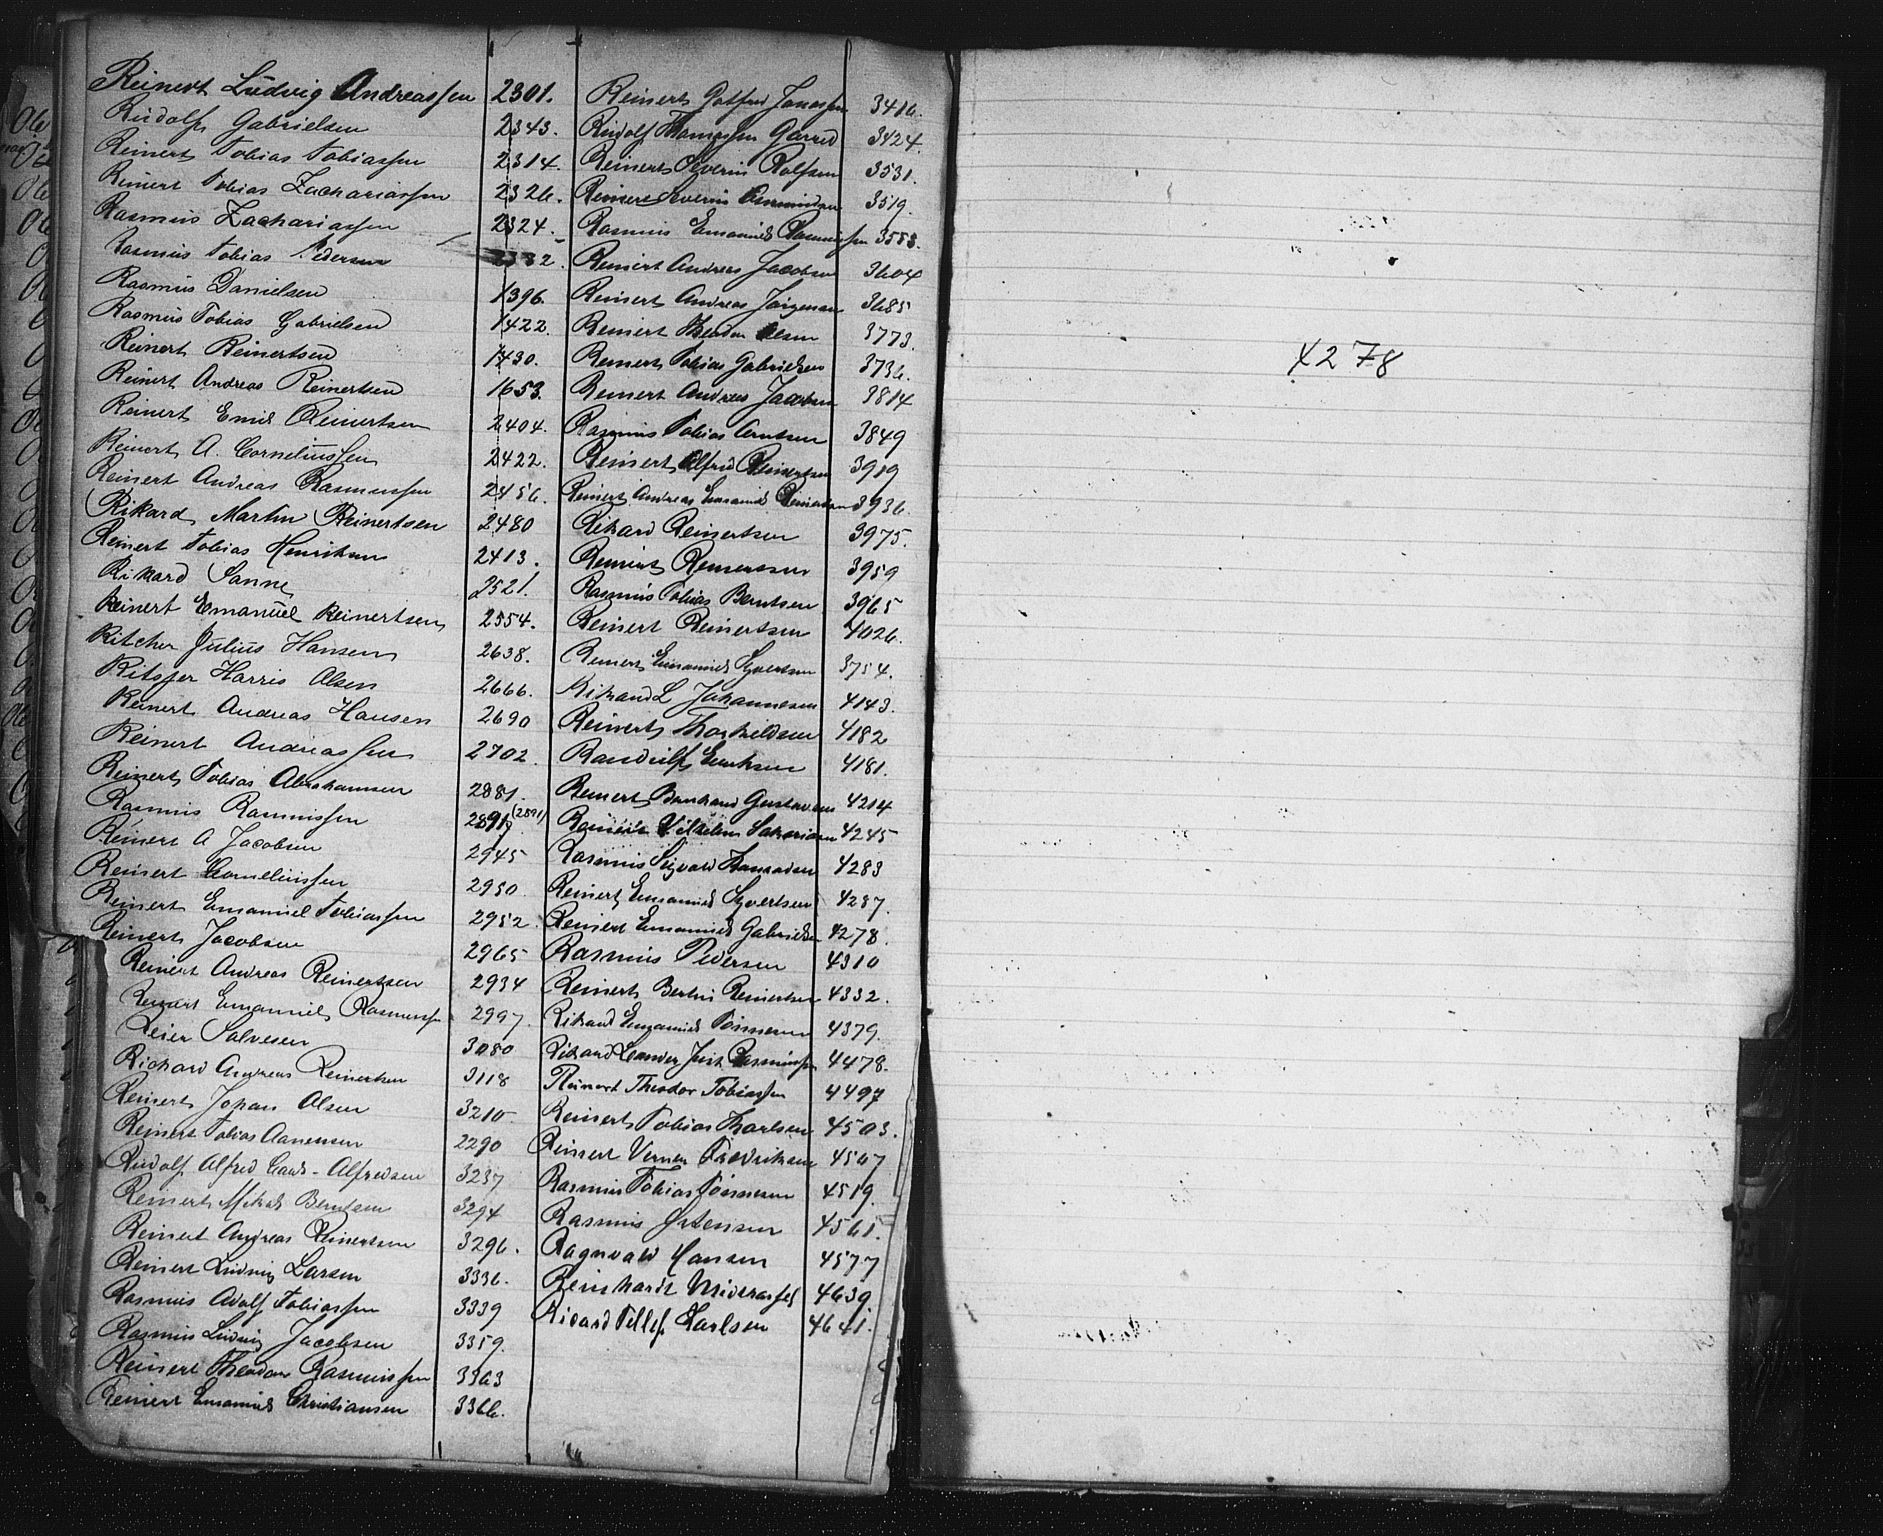 Reinert Ludvig Andreassen 2301.
Rudolf Gabrielsen 2343.
Reinert Tobias Tobiassen 2314.
Reinert Tobias Zachariassen 2326.
Rasmus Zachariassen 2324.
Rasmus Tobias Pedersen 2332.
Rasmus Danielsen 1396.
Rasmus Tobias Gabrielsen 1422.
Reinert Reinertsen 1430.
Reinert Andreas Reinertsen 1653.
Reinert Emil Reinertsen 2404.
Reinert A. Corneliussen 2422.
Reinert Andreas Rasmussen 2456.
Rikard Martin Reinertsen 2480
Reinert Tobias Henriksen 2413.
Rikard Sanne 2521.
Reinert Emanuel Reinertsen 2554.
Ritcher Julius Hansen 2638.
Ritsjer Harris Olsen 2666.
Reinert Andreas Hansen 2690
Reinert Andreassen 2702.
Reinert Tobias Abrahamsen 2881.
Rasmus Rasmussen 2891 (2891)
Reinert A Jacobsen 2945
Reinert Corneliussen 2950
Reinert Emanuel Tobiassen 2952
Reinert Jacobsen 2965
Reinert Andreas Reinertsen 2934
Reinert Emanuel Rasmussen 2997.
Reier Salvesen 3080
Richard Andreas Reinertsen 3118
Reinert Johan Olsen 3210
Reinert Tobias Aanensen 2290
Rudolf Alfred - Alfredsen 3237
Reinert Mikal Berntsen 3294
Reinert Andreas Reinertsen 3296.
Reinert Ludvig Larsen 3336.
Rasmus Adolf Tobiassen 3339
Rasmus Ludvig Jacobsen 3359.
Reinert Theodor Rasmussen 3363
Reinert Emanuel Christiansen 3366.
Reinert Gotfred Jonassen 3416.
Rudolf Thomassen Garred 3424.
Reinert Severin Rolfsen 3531.
Reinert Severin Osmundsen 3519.
Rasmus Emanuel Rasmussen 3553.
Reinert Andreas Jacobsen 3604
Reinert Andreas Jørgensen 3685
Reinert Theodor Olsen 3773.
Reinert Tobias Gabrielsen 3736.
Reinert Andreas Jacobsen 3814
Rasmus Tobias Arntsen 3849
Reinert Alfred Reinertsen 3919
Reinert Andreas Emanuel Reinertsen 3936.
Rikard Reinertsen 3975.
Reinert Reinertsen 3959
Rasmus Tobias Berntsen 3965
Reinert Reinertsen 4026.
Reinert Emanuel Syvertsen 3754.
Rikard L Johannesen 4143.
Reinert Thorkildsen 4182
Randulf Eriksen 4181.
Reinert Bernhard Gustavsen 4214
Vilhelm Sakariasen 4245
Rasmus Sigvald 4283
Reinert Emanuel Syvertsen 4287.
Reinert Emanuel Gabrielsen 4278.
Rasmus Pedersen 4310
Reinert Bertin Reinertsen 4332.
Rikard Emanuel Tønnesen 4379.
Rikard Leander Just Rasmussen 4478.
Reinert Theodor Tobiassen 4497
Reinert Tobias Karlsen 4503.
Reinert Verner Fredriksen 4507
Rasmus Tobias Tønnesen 4519.
Rasmus Ørtensen 4561.
Ragnvald Hansen 4577
Reinhardt 4639.
Ricard Tellef Karlsen 4641.
4278